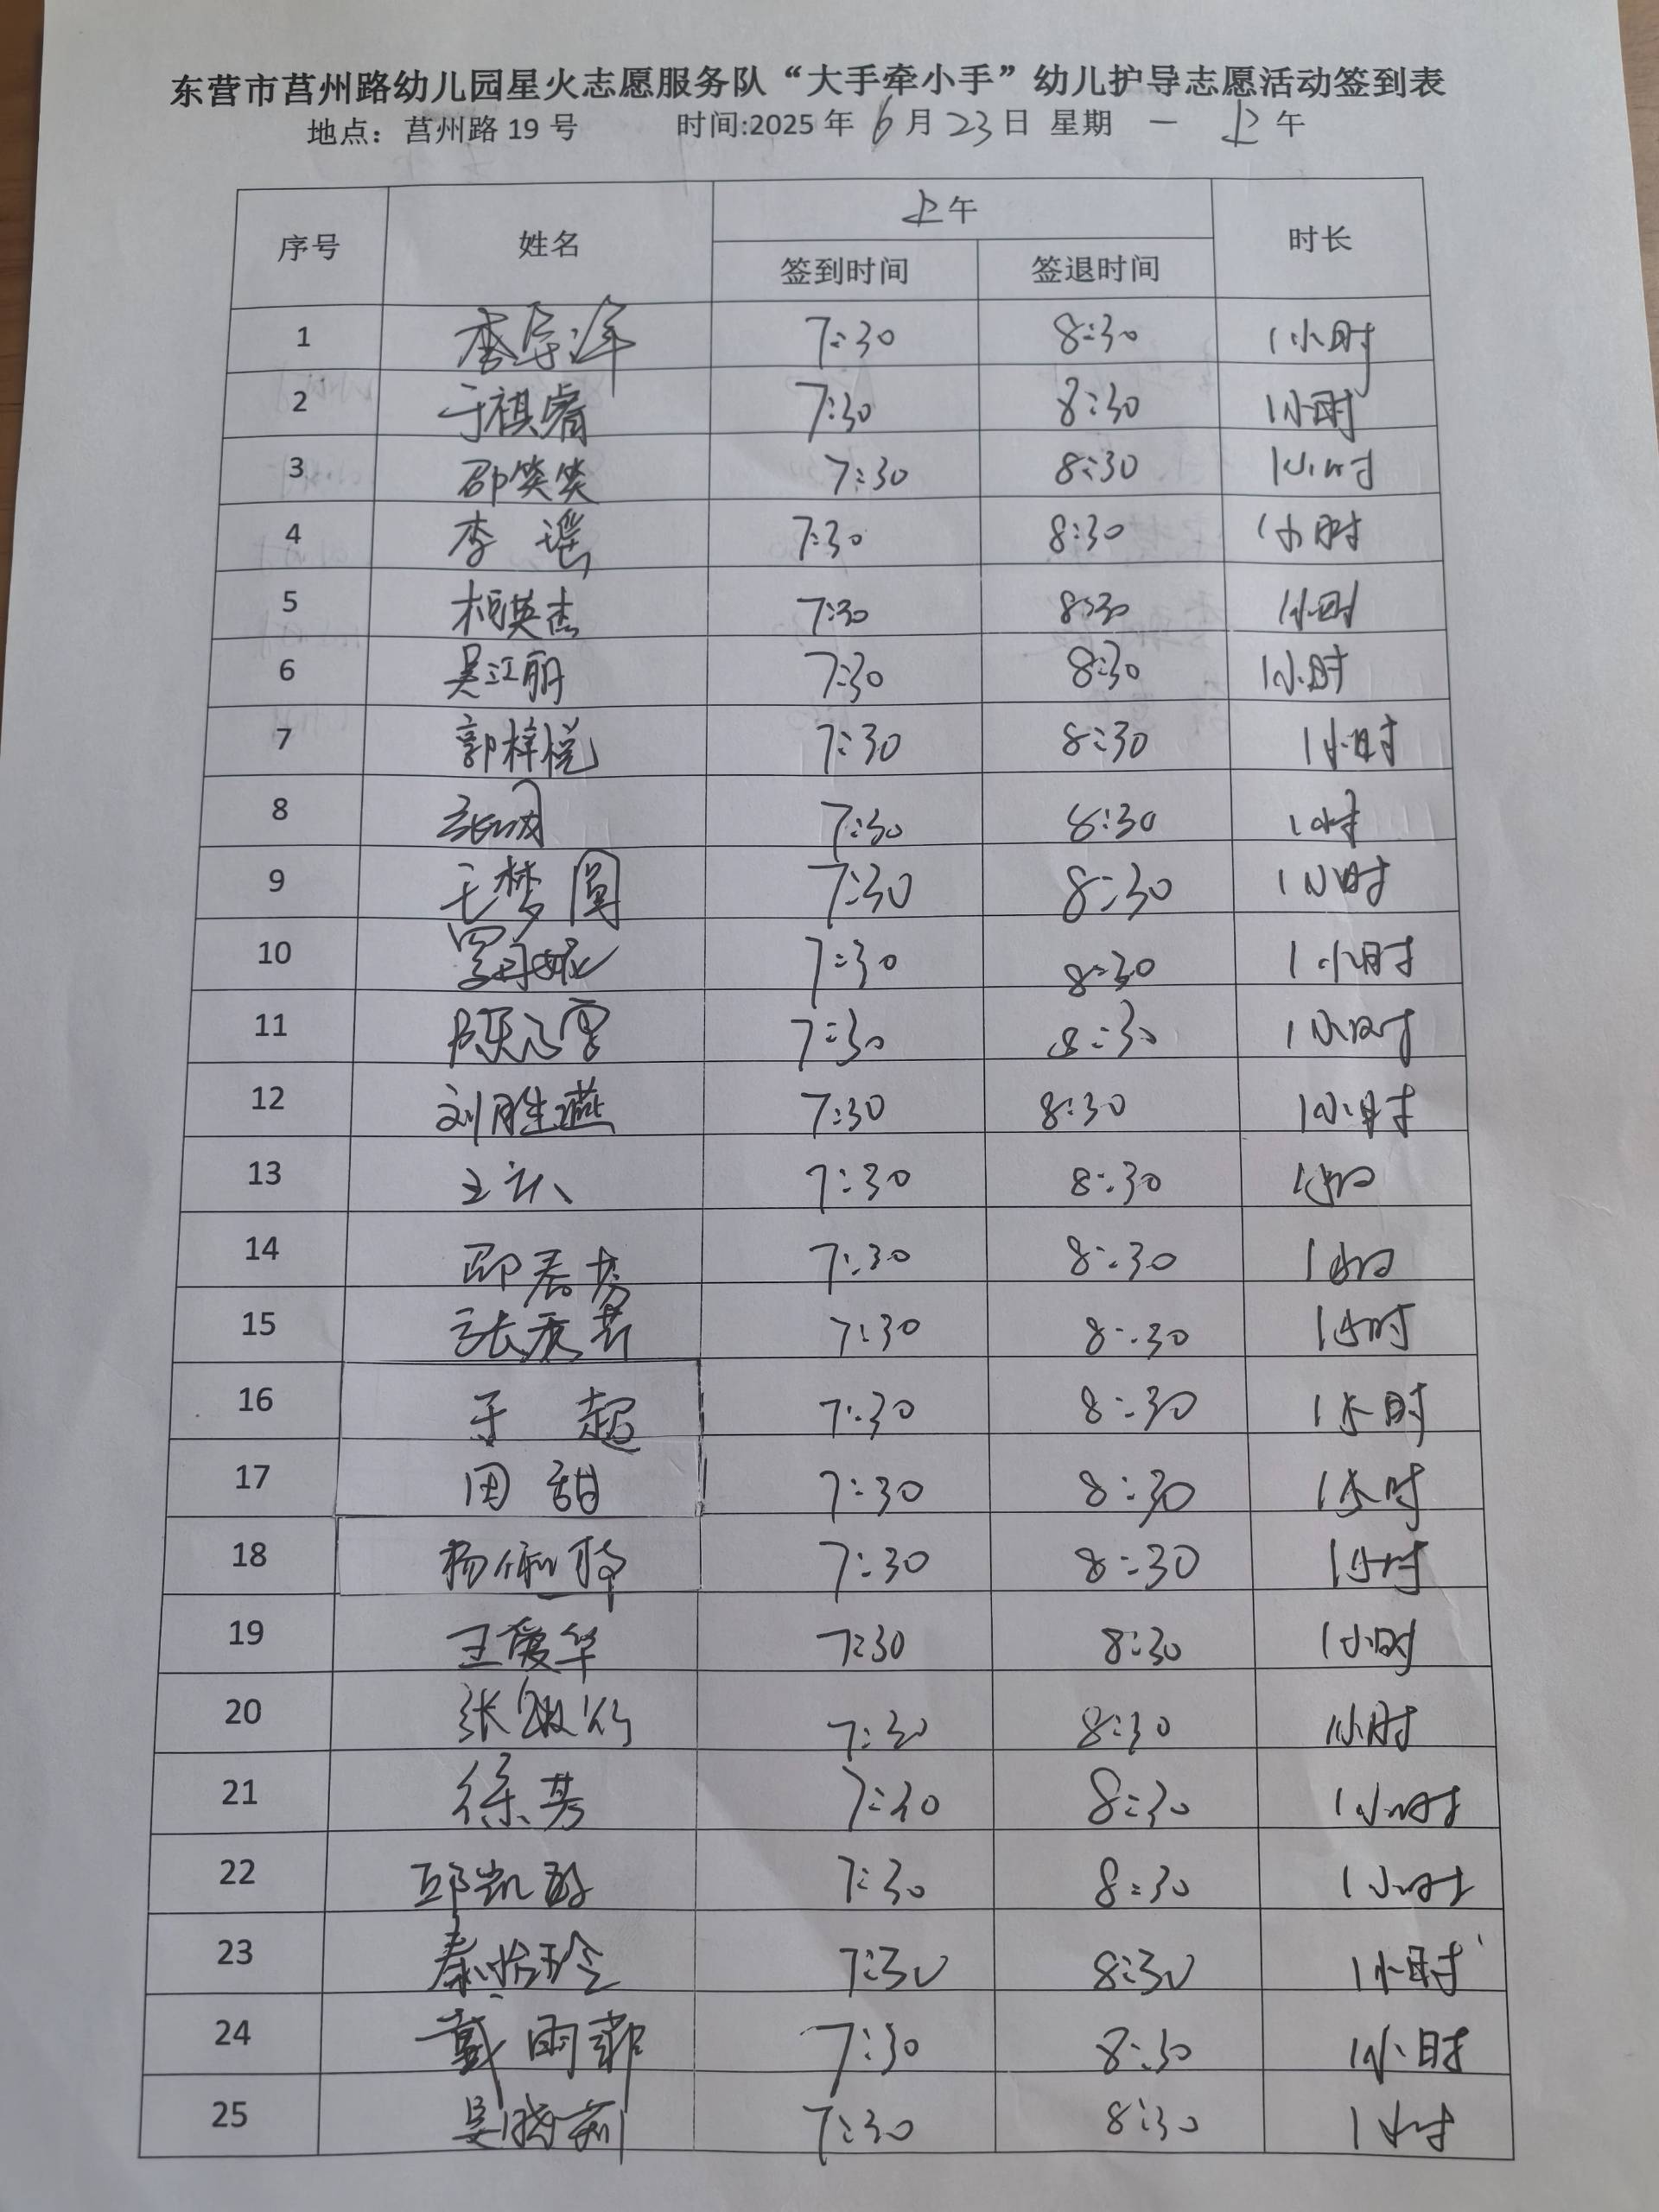 东营市莒州路幼儿园星火志愿服务队“大手牵小手”幼儿护导志愿活动签到表
地点：莒州路 19 号 时间:2025 年 6 月 23 日 星期 一 上 午
序号 姓名 上午 时长
签到时间 签退时间
1 李 7:30 8:30 1小时
2 于祺睿 7:30 8:30 1小时
3 邵笑笑 7:30 8:30 1小时
4 李 瑶 7:30 8:30 1小时
5 柏英杰 7:30 8:30 1小时
6 吴江丽 7:30 8:30 1小时
7 郭梓悦 7:30 8:30 1小时
8 张 7:30 8:30 1小时
9 王梦圆 7:30 8:30 1小时
10 7:30 8:30 1小时
11 陈 雪 7:30 8:30 1小时
12 刘胜燕 7:30 8:30 1小时
13 王 7:30 8:30 1小时
14 邵春芳 7:30 8:30 1小时
15 张 7:30 8:30 1小时
16 于 超 7:30 8:30 1小时
17 田 甜 7:30 8:30 1小时
18 杨 7:30 8:30 1小时
19 王爱华 7:30 8:30 1小时
20 张敏 7:30 8:30 1小时
21 徐芳 7:30 8:30 1小时
22 邱凯 7:30 8:30 1小时
23 秦怡玲 7:30 8:30 1小时
24 戴雨菲 7:30 8:30 1小时
25 吴晓莉 7:30 8:30 1小时